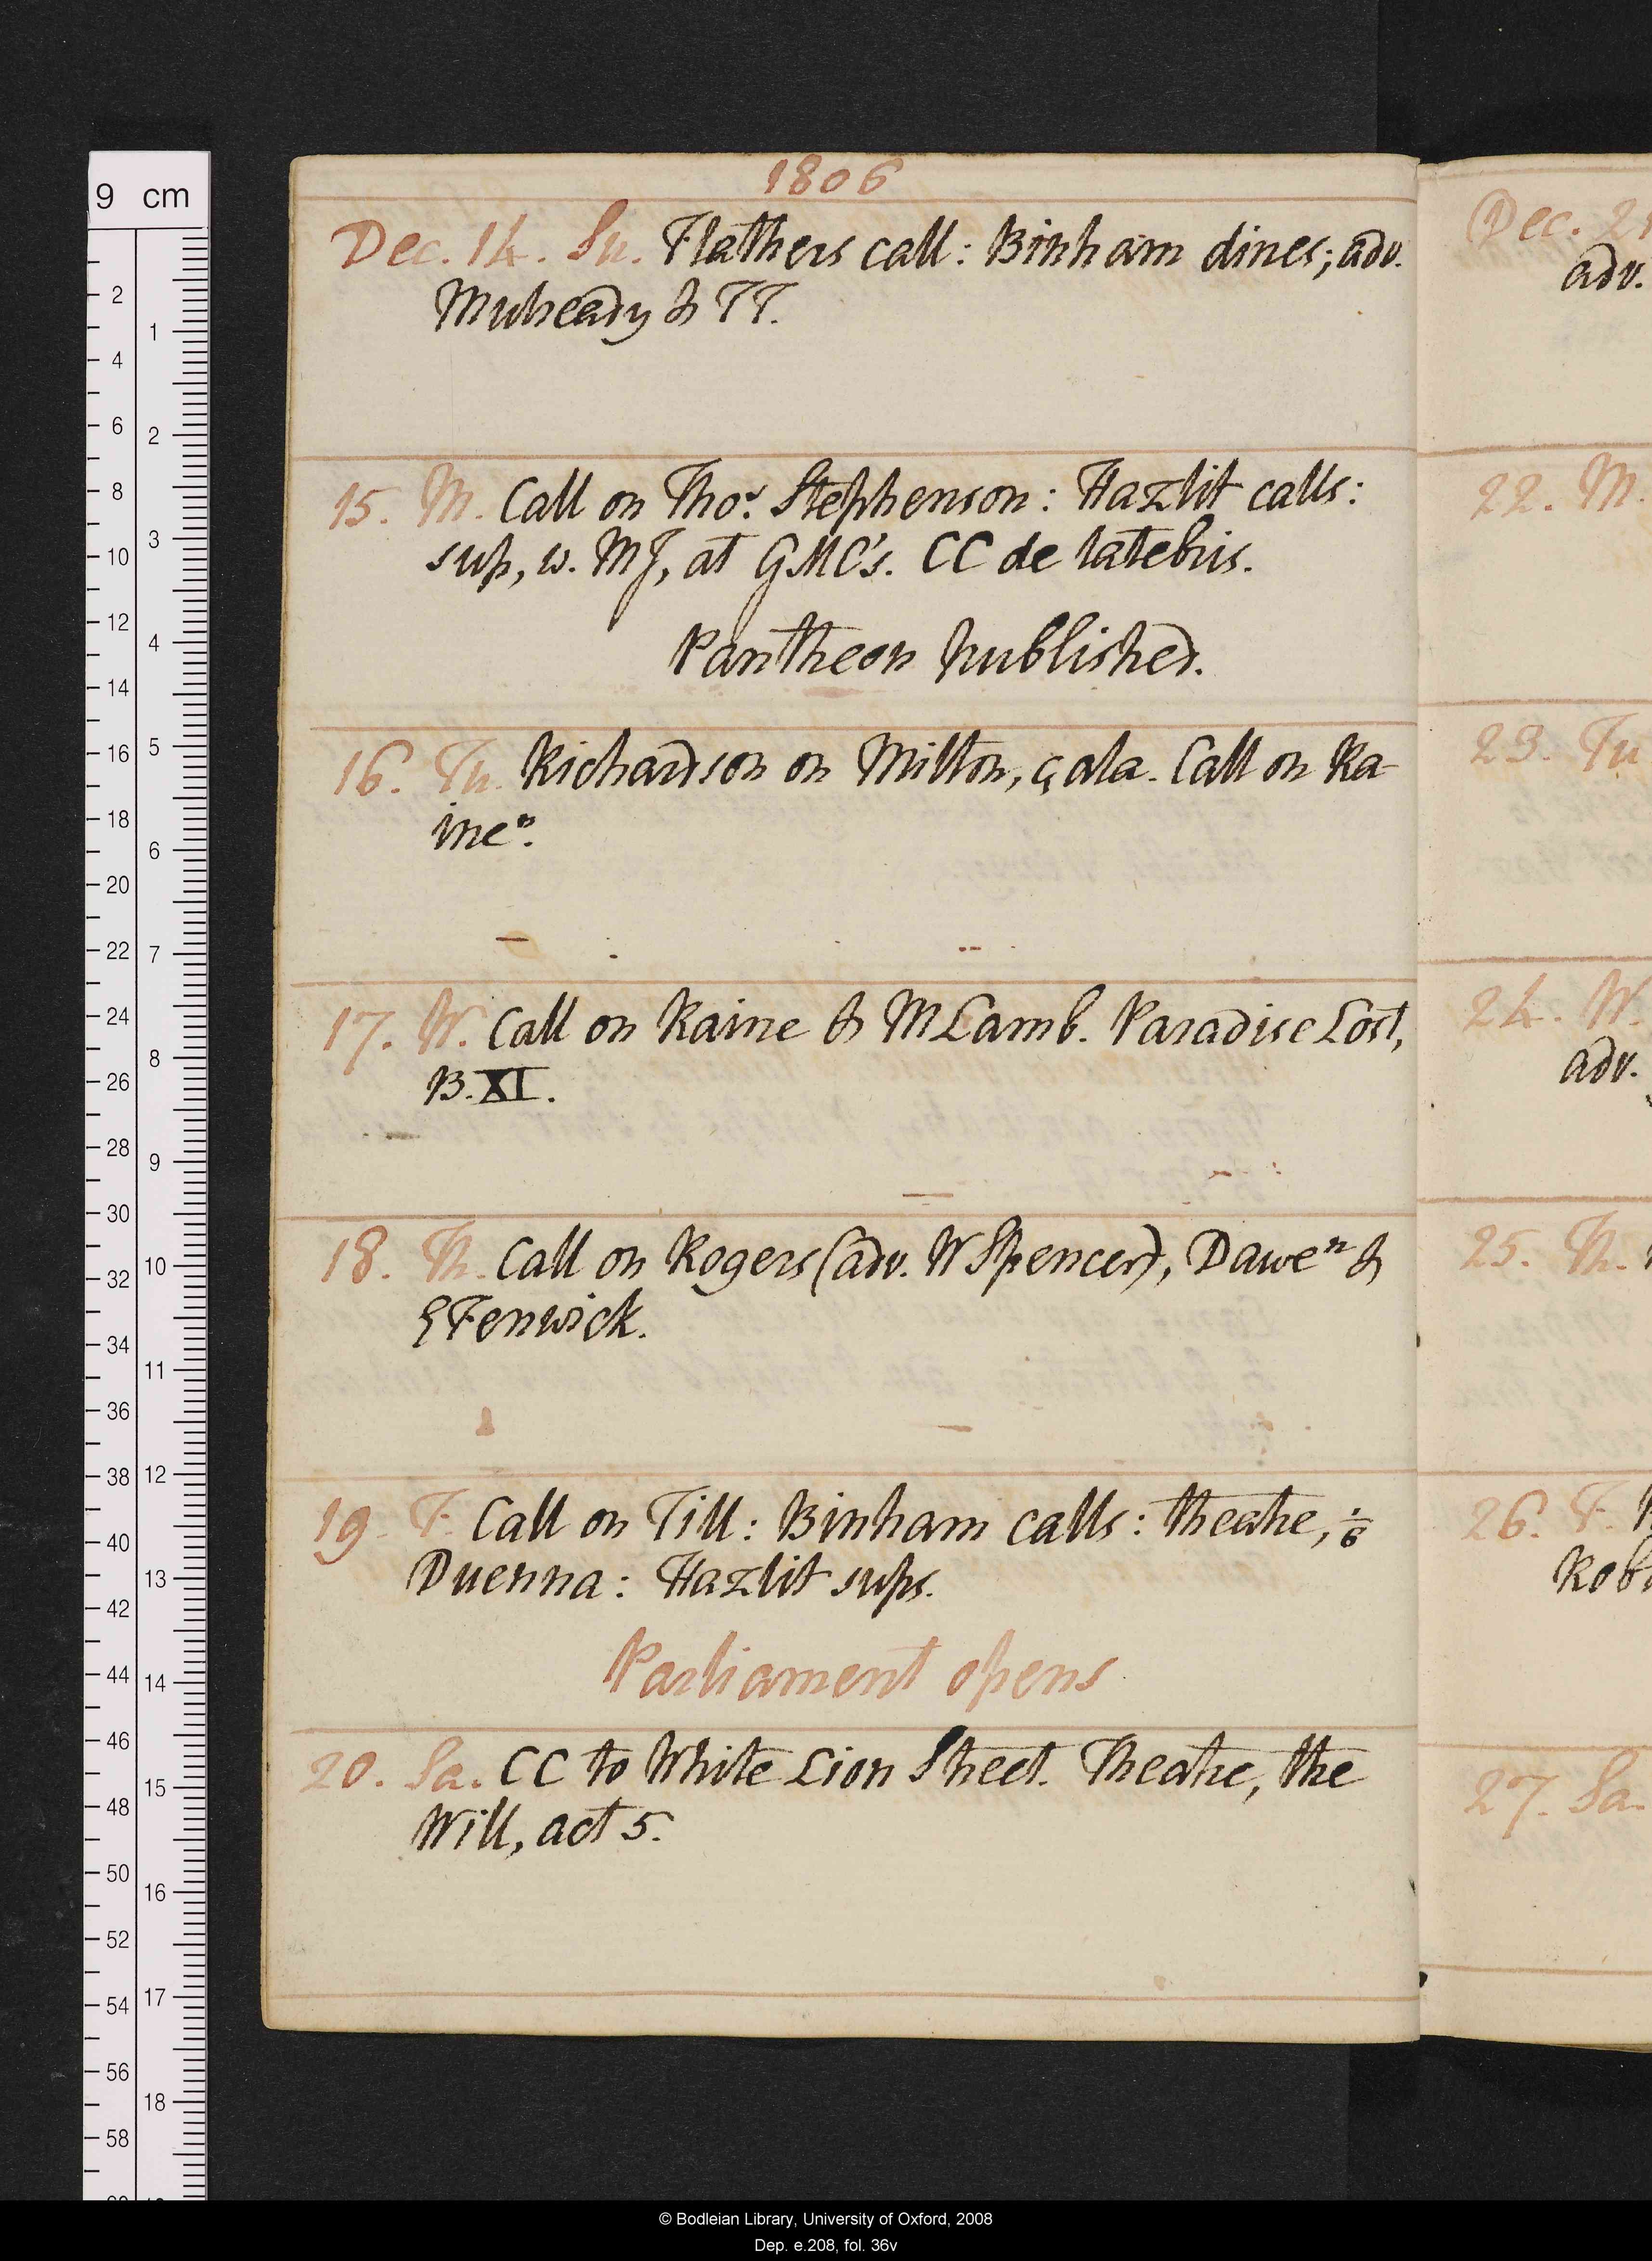 1806
Dec. 14. Su. Flathers call: Binham dines; adv.
Mulready & TT.
15. M. Call on Thos. Stephenson: Hazlit calls:
sup, w. MJ, at GMC's. CC de latebris.
Pantheon published.
16. Tu. Richardson on Milton, çala. Call on Ra-
ine n.
17. W. Call on Raine & M Lamb. Paradise Lost,
B. XI.
18. Th. Call on Rogers (adv. W Spencer), Dawe n &
E Fenwick.
19. F. Call on Till: Binham calls: theatre, 1/6
Duenna: Hazlit sups.
Parliament opens
20. Sa. CC to White Lion Street. Theatre, the
Will, act 5.
Dec. 21
adv.
22. M.
23. Tu
24. W.
adv.
25. Th.
26. F.
Rob
27. Sa.
9 cm
2
4
6
8
10
12
14
16
18
20
22
24
26
28
30
32
34
36
38
40
42
44
46
48
50
52
54
56
58
1
2
3
4
5
6
7
8
9
10
11
12
13
14
15
16
17
18
© Bodleian Library, University of Oxford, 2008
Dep. e.208, fol. 36v